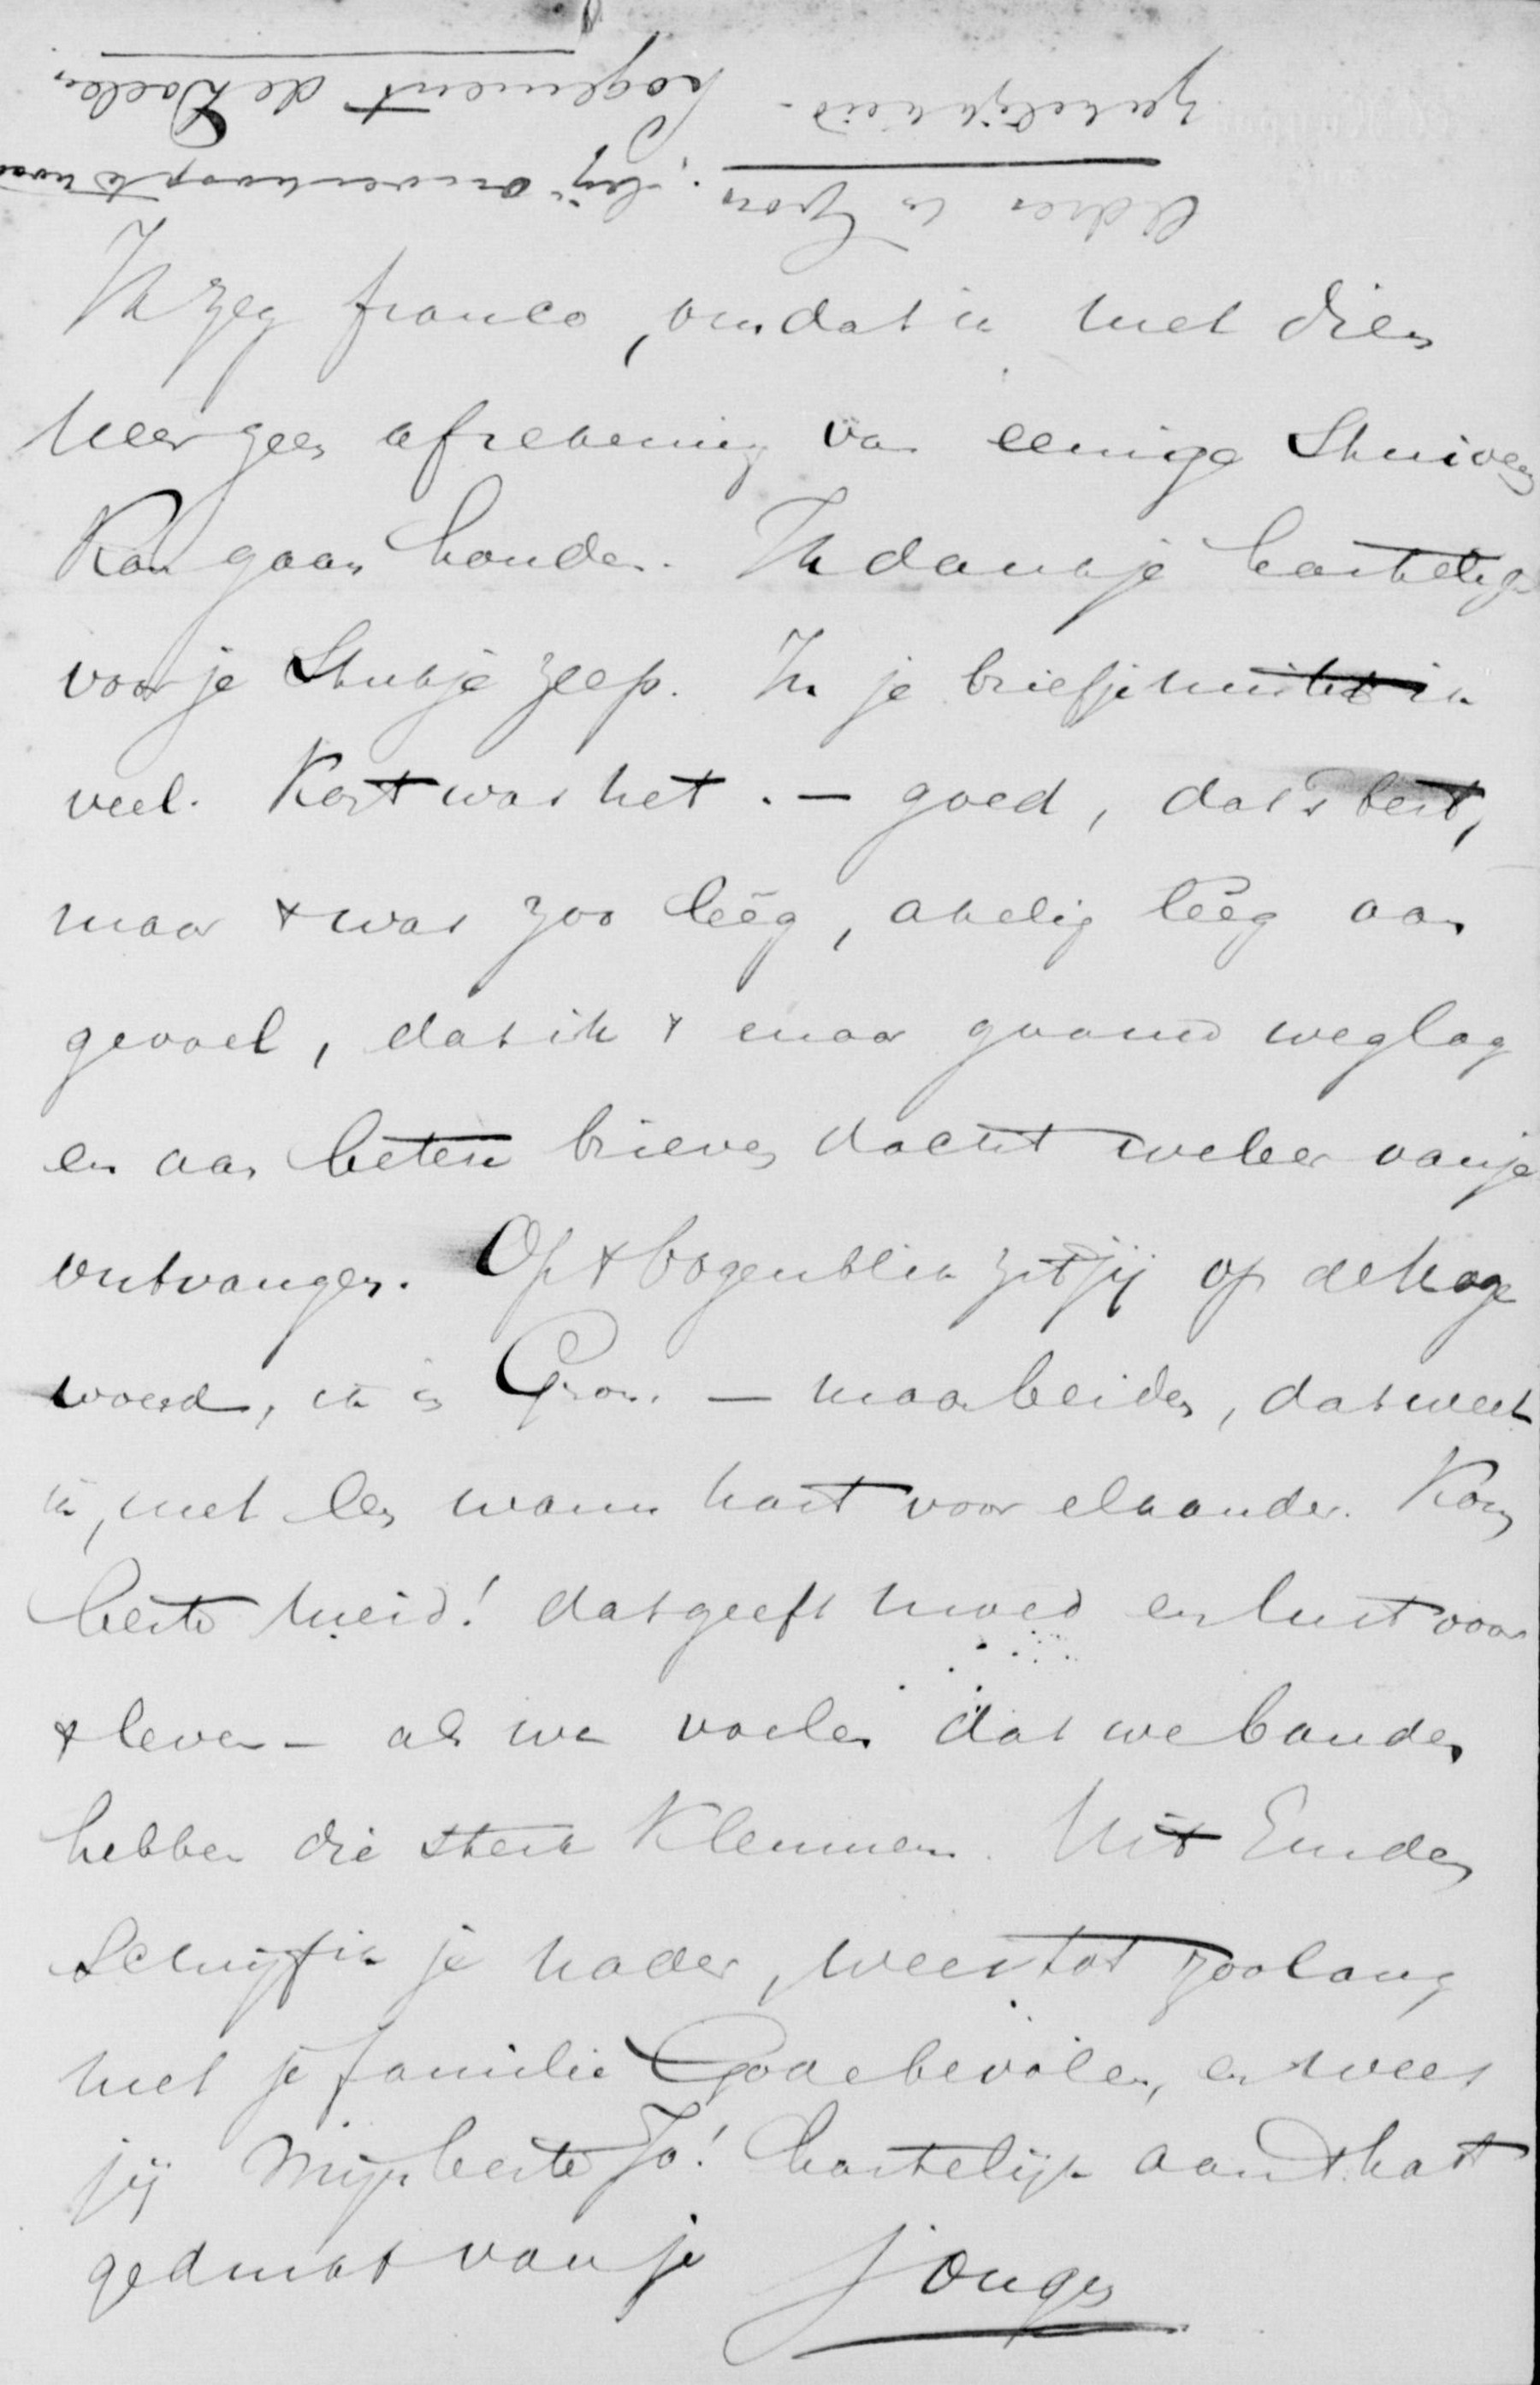 Adres in Gron:
Logement de Doelen
Ik zeg franco, omdat ik met dien
heer geen afrekening van eenige stuivers
kan gaan houden. Ik dank je hartelijk
voor je stukje zeep. In je briefje miste ik
veel. Kort was het. — goed, dat's best,
maar 't was zoo leêg, akelig leêg aan
gevoel, dat ik 't maar gaauw weglag
en aan betere brieven dacht weleer van je
ontvangen. Op 't oogenblik zit jij op de hooge
woerd, ik in Gron. — maar beiden, dat weet
ik, met een warm hart voor elkander. Kom
beste meid! dat geeft moed en lust voor
't leven – als we voelen dat we banden
hebben die sterk klemmen. Uit Emden
schrijf ik je nader, wees tot zoolang
met je familie Gode bevolen, en wees
jij mijn beste Jo! hartelijk aan 't hart
gedrukt van je jongen